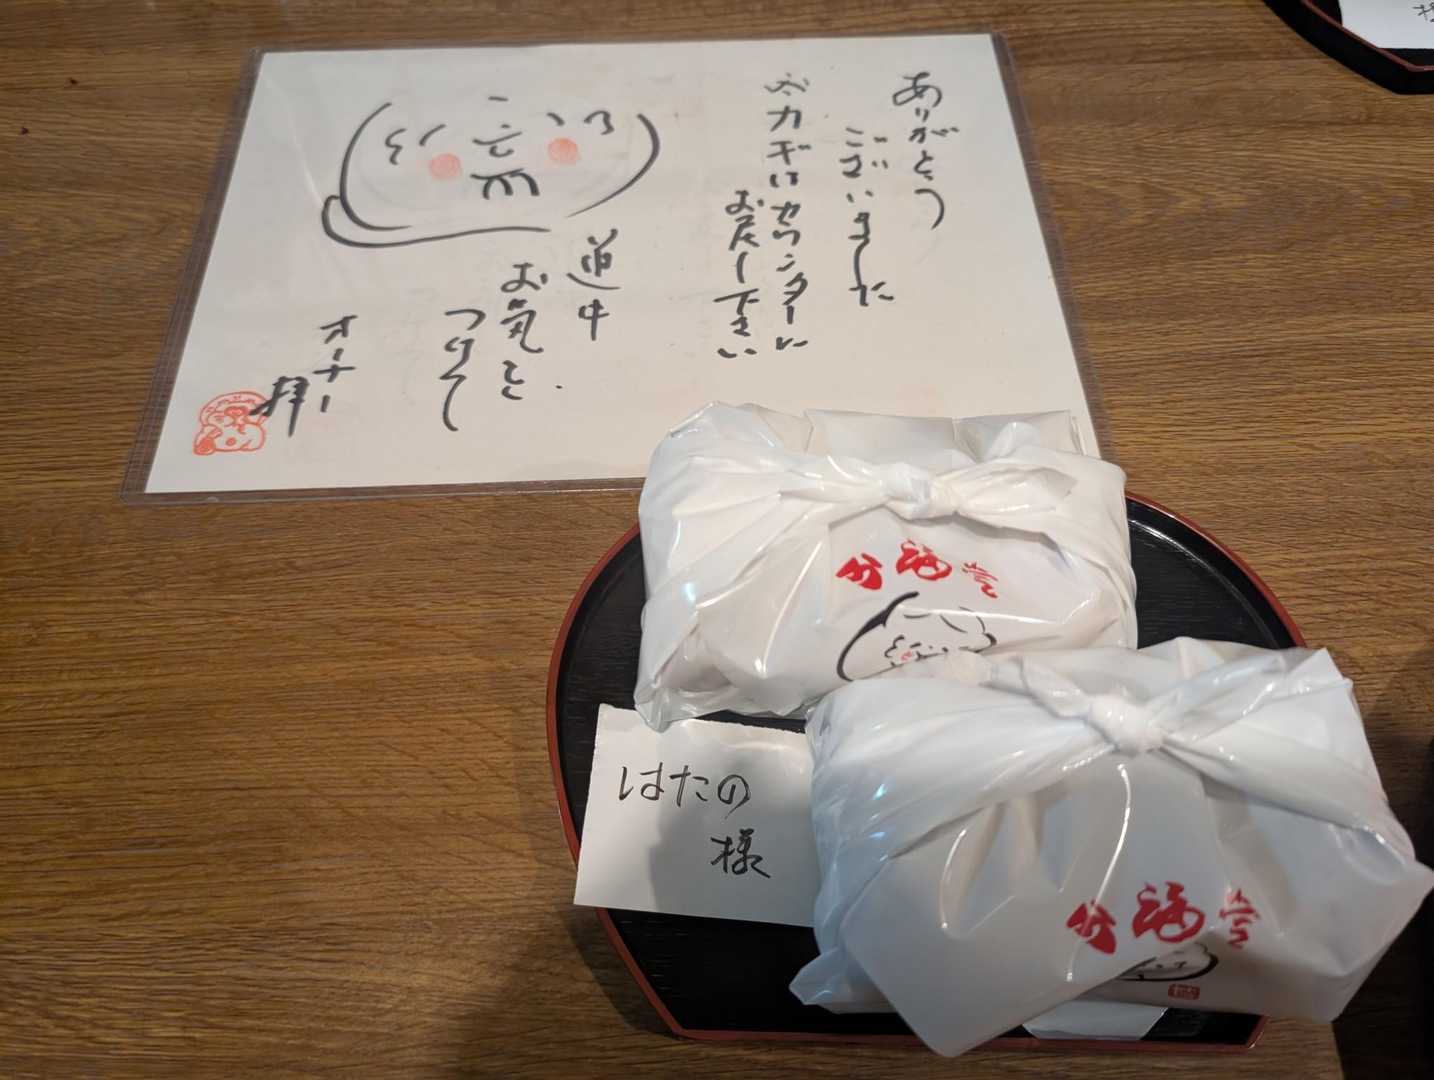 ありがとう
ございました
おカギはカウンターに
お戻し下さい
道中
お気を
つけて
オーナー
拝
分福堂
はたの
様
分福堂